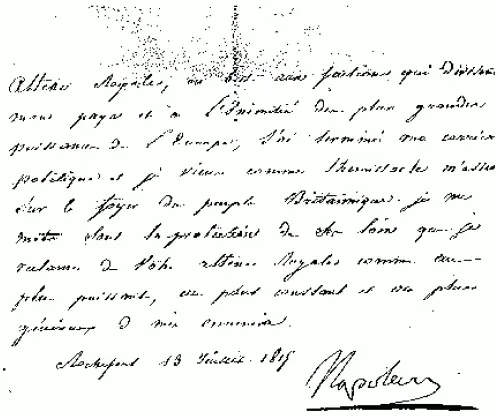 Altesse Royale, en but aux factions qui divisent
mon pays et à l'Inimitié des plus grandes
puissances de l'Europe, j'ai terminé ma carrière
politique et je viens comme Themistocle m'asseoir
sur le foyer du peuple Britannique je me
mets sous la protection de ses lois que je
reclame de Votre Altesse Royale comme au
plus puissant, au plus constant et au plus
généreux de mes ennemis.
Rochefort 13 Juillet 1815
Napoleon